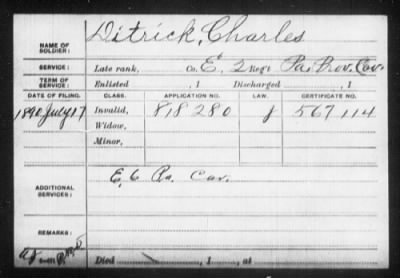 NAME OF SOLDIER: Ditrick, Charles
SERVICE: Late rank, Co. E, 2 Reg't Pa. Prov. Cav.
TERM OF SERVICE: Enlisted , 1 Discharged , 1
DATE OF FILING. CLASS. APPLICATION NO. LAW. CERTIFICATE NO.
1890 July 17 Invalid, 818280 567114
Widow,
Minor,
ADDITIONAL SERVICES: E, 6 Pa. Cav.
REMARKS:
Died , 1 , at